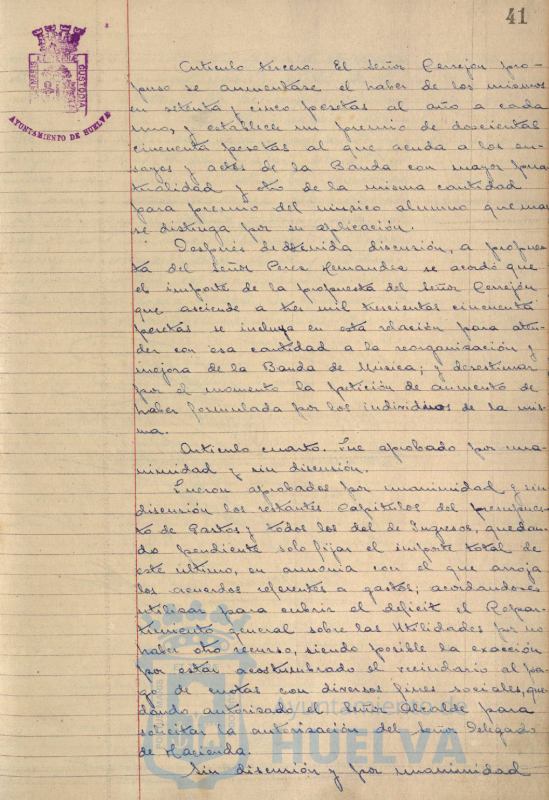 41
PORTUS MARIS ET TERRAE CUSTODIA
AYUNTAMIENTO DE HUELVA
Articulo tercero. El Señor Cerrejón pro-
puso se aumentáse el haber de los mismos
en setenta y cinco pesetas al año a cada
uno, y establecer un premio de doscientas
cincuenta pesetas al que acuda a los en-
sayos y actos de la Banda con mayor pun-
tualidad y otro de la misma cantidad
para premio del músico alumno que mas
se distinga por su aplicación.
Después de debida discusión, a propues-
ta del Señor Perez Hernandez se acordó que
el importe de la propuesta del Señor Cerrejón
que asciende a tres mil trescientas cincuenta
pesetas se incluya en esta relación para aten-
der con esa cantidad a la reorganización y
mejora de la Banda de Música; y desestimar
por el momento la petición de aumento de
haber formulada por los individuos de la mis-
ma.
Articulo cuarto. Fue aprobado por una-
nimidad y sin discusión.
Fueron aprobados por unanimidad y sin
discusión los restantes Capitulos del presupues-
to de Gastos y todos los del de Ingresos, quedan-
do pendiente solo fijar el importe total de
este último, en armonia con el que arroja
los acuerdos referentes a gastos; acordandose
utilizar para cubrir el déficit el Repar-
timiento general sobre las Utilidades por no
haber otro recurso, siendo posible la exacción
por estar acostumbrado el vecindario al pa-
go de cuotas con diversos fines sociales, que-
dando autorizado el Señor Alcalde para
solicitar la autorización del Señor Delegado
de Hacienda.
Sin discusión y por unanimidad
Ayuntamiento de
HUELVA